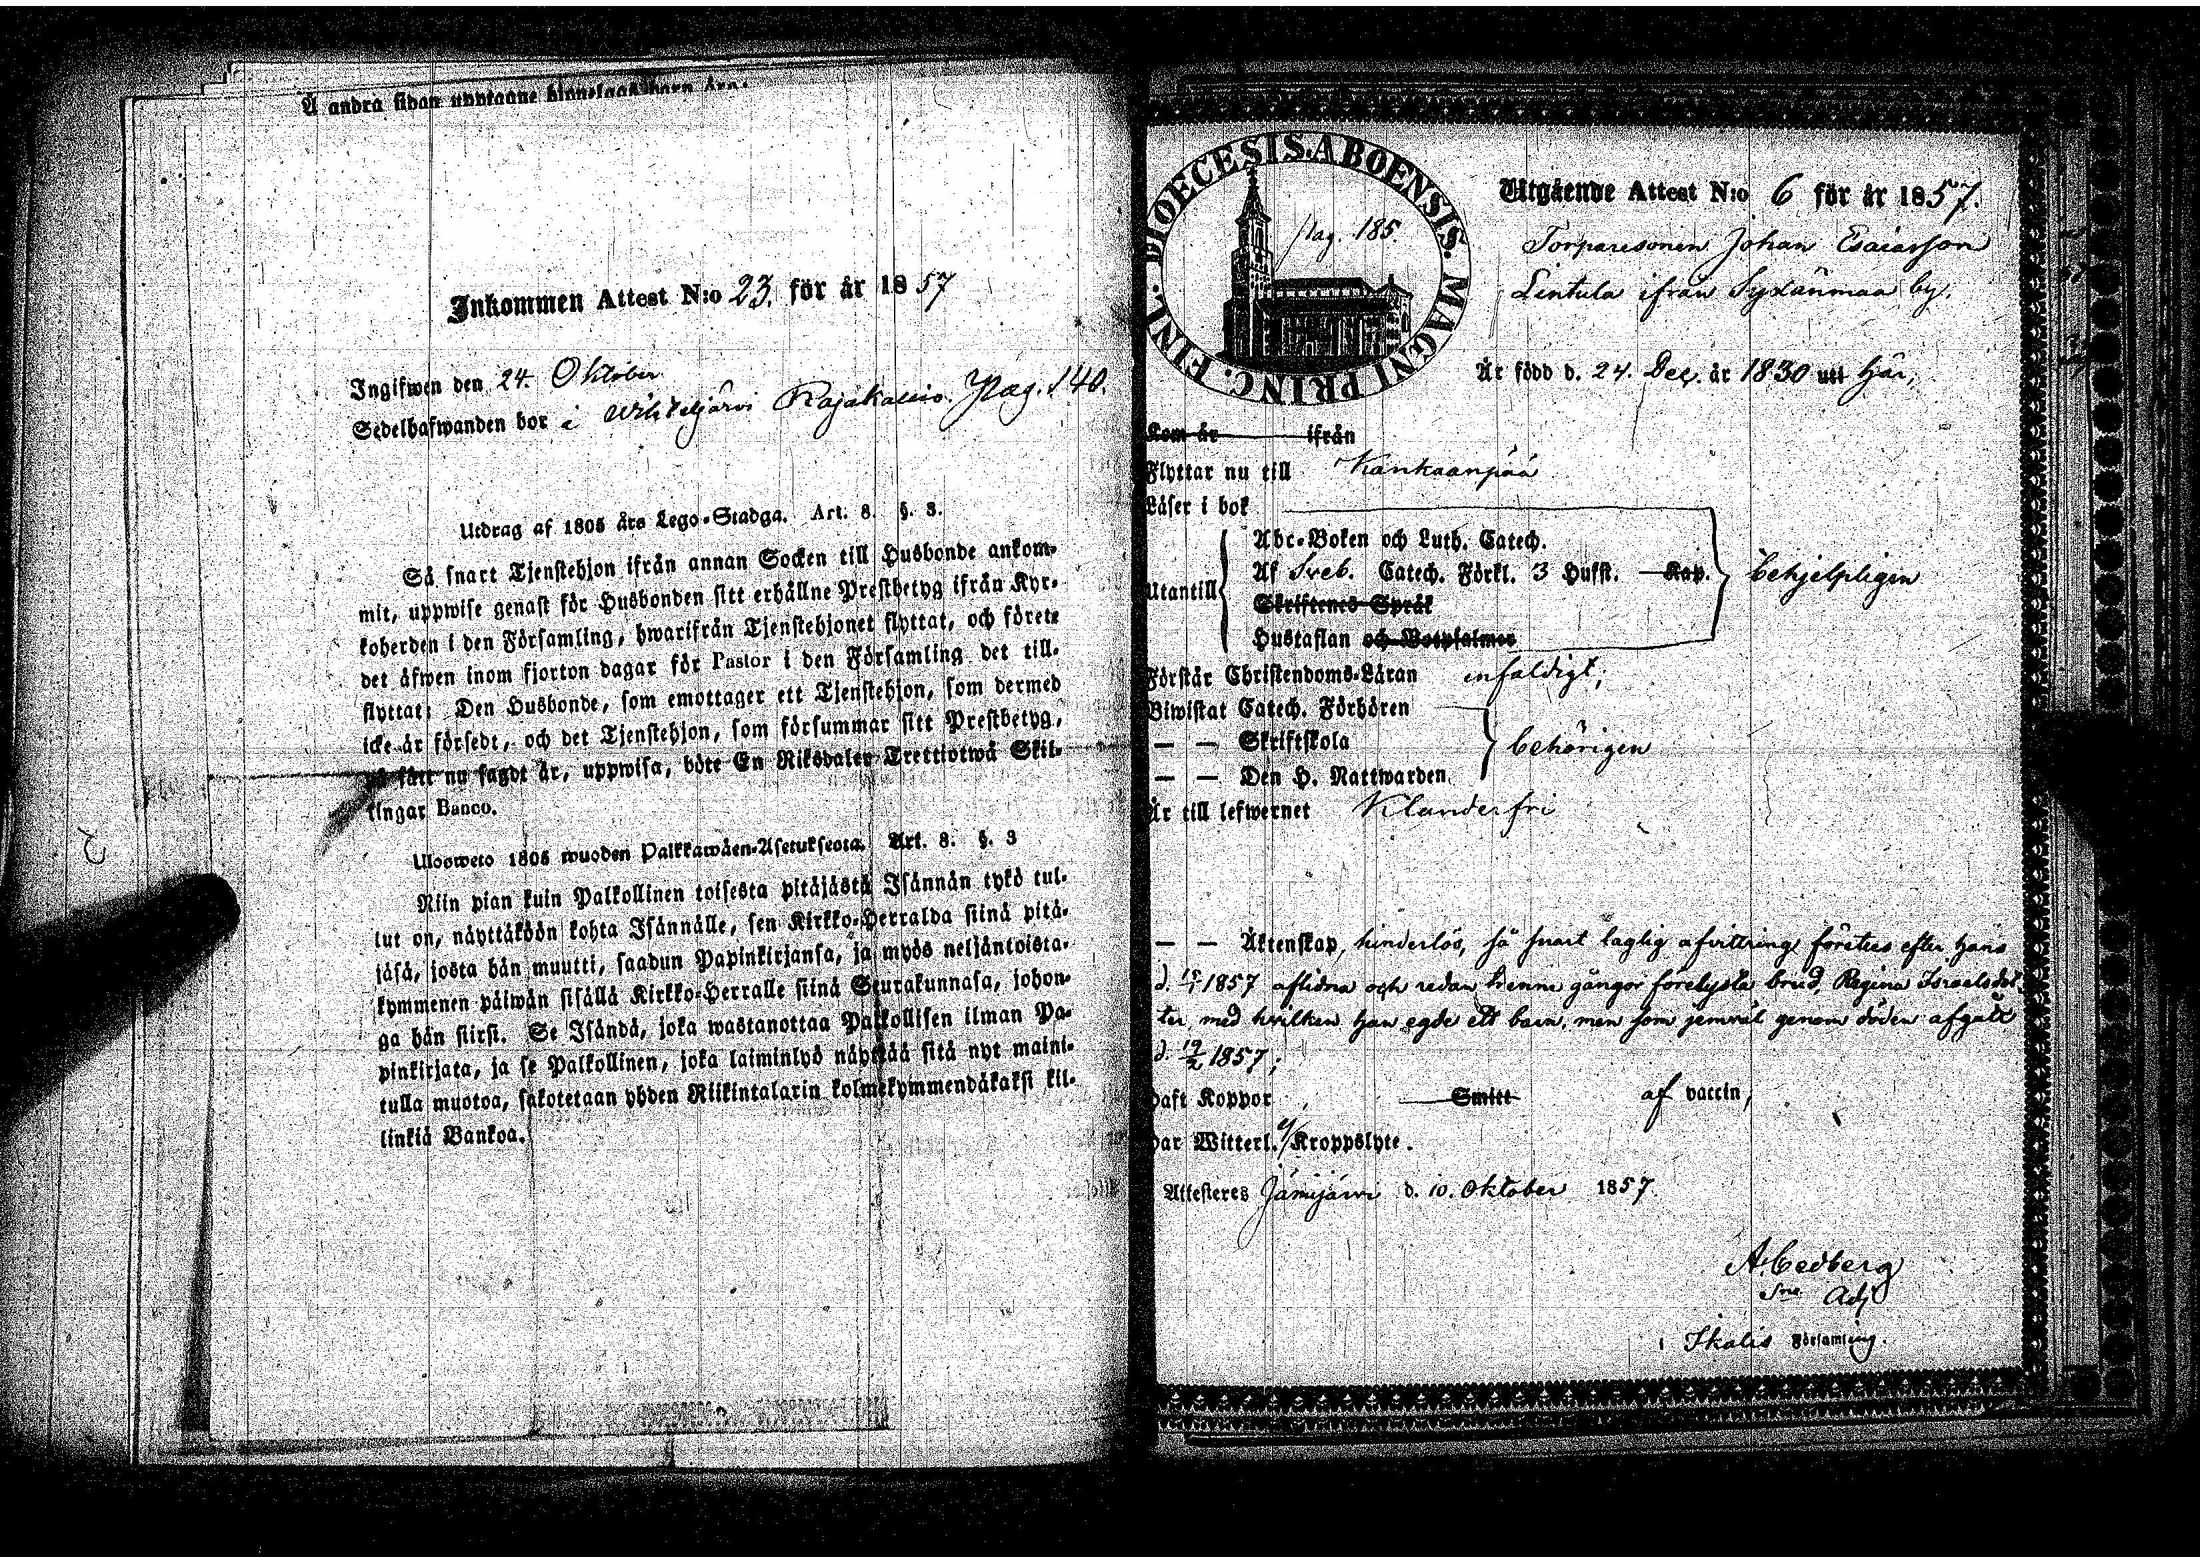 Å andra sidan upptagne
Inkommen Attest N:o 23. för år 1857
Ingifwen den 24. Oktober
Sedelhafwanden bor i Wihteljärvi Rajakallio. Pag. 140.
Utdrag af 1805 års Lego-Stadga. Art. 8. §. 3.
Så snart Tjenstehjon ifrån annan Socken till Husbonde ankom-
mit, uppwise genast för Husbonden sitt erhållne Prestbetyg ifrån Kyr-
koherden i den Församling, hwarifrån Tjenstehjonet flyttat, och förete
det äfwen inom fjorton dagar för Pastor i den Församling det till-
flyttat: Den Husbonde, som emottager ett Tjenstehjon, som dermed
icke är försedt, och det Tjenstehjon, som försummar sitt Prestbetyg,
på sätt nu sagdt är, uppwisa, böte En Riksdaler Trettiotwå Skil-
lingar Banco.
Ulosweto 1805 wuoden Palkkawäen-Asetuksesta. Art. 8. §. 3
Niin pian kuin Palkollinen toisesta pitäjästä Isännän tykö tul-
lut on, näyttäköön kohta Isännälle, sen Kirkko-Herralda siinä pitä-
jäsä, josta hän muutti, saadun Papinkirjansa, ja myös neljäntoista-
kymmenen päiwän sisällä Kirkko-Herralle siinä Seurakunnasa, johon-
ga hän siirsi. Se Isändä, joka wastanottaa Palkollisen ilman Pa-
pinkirjata, ja se Palkollinen, joka laiminlyö näyttää sitä nyt maini-
tulla muotoa, sakotetaan yhden Riikintalarin kolmekymmendäkaksi kil-
linkiä Bankoa.
DIOECESIS ABOENSIS. MAGNI PRINC. FINL.
Pag. 185.
Utgående Attest N:o 6 för år 1857.
Torparesonen Johan Esaiasson
Lintula ifrån Sydänmaa by.
Är född d. 24. Dec. år 1830 uti här,
Kom år ifrån
Flyttar nu till Kankaanpää
Läser i bok
Abc-Boken och Luth. Catech.
Utantill Af Sveb. Catech. Förkl. 3 Hufst. Kap. behjelpligen
Skriftenes Språk
Hustaflan och Botpsalmer
Förstår Christendoms-Läran enfaldigt,
Biwistat Catech. Förhören
— — Skriftskola behörigen
— — Den H. Nattwarden
Är till lefwernet Klanderfri
— — Äktenskap, hinderlös, så snart laglig afvittring företes efter hans
d. 1857 aflidna och redan trenne gångor förelysta brud, Regina Israelsdot-
ter, med hvilken han egde ett barn, men som jemväl genom döden afgått
d. 19/2 1857;
Haft Koppor Smitt af vaccin,
Har Witterl. Kroppslyte.
Attesteres Jämijärvi d. 10. Oktober 1857
A. Cedberg
Adj
i Ikalis Församling.